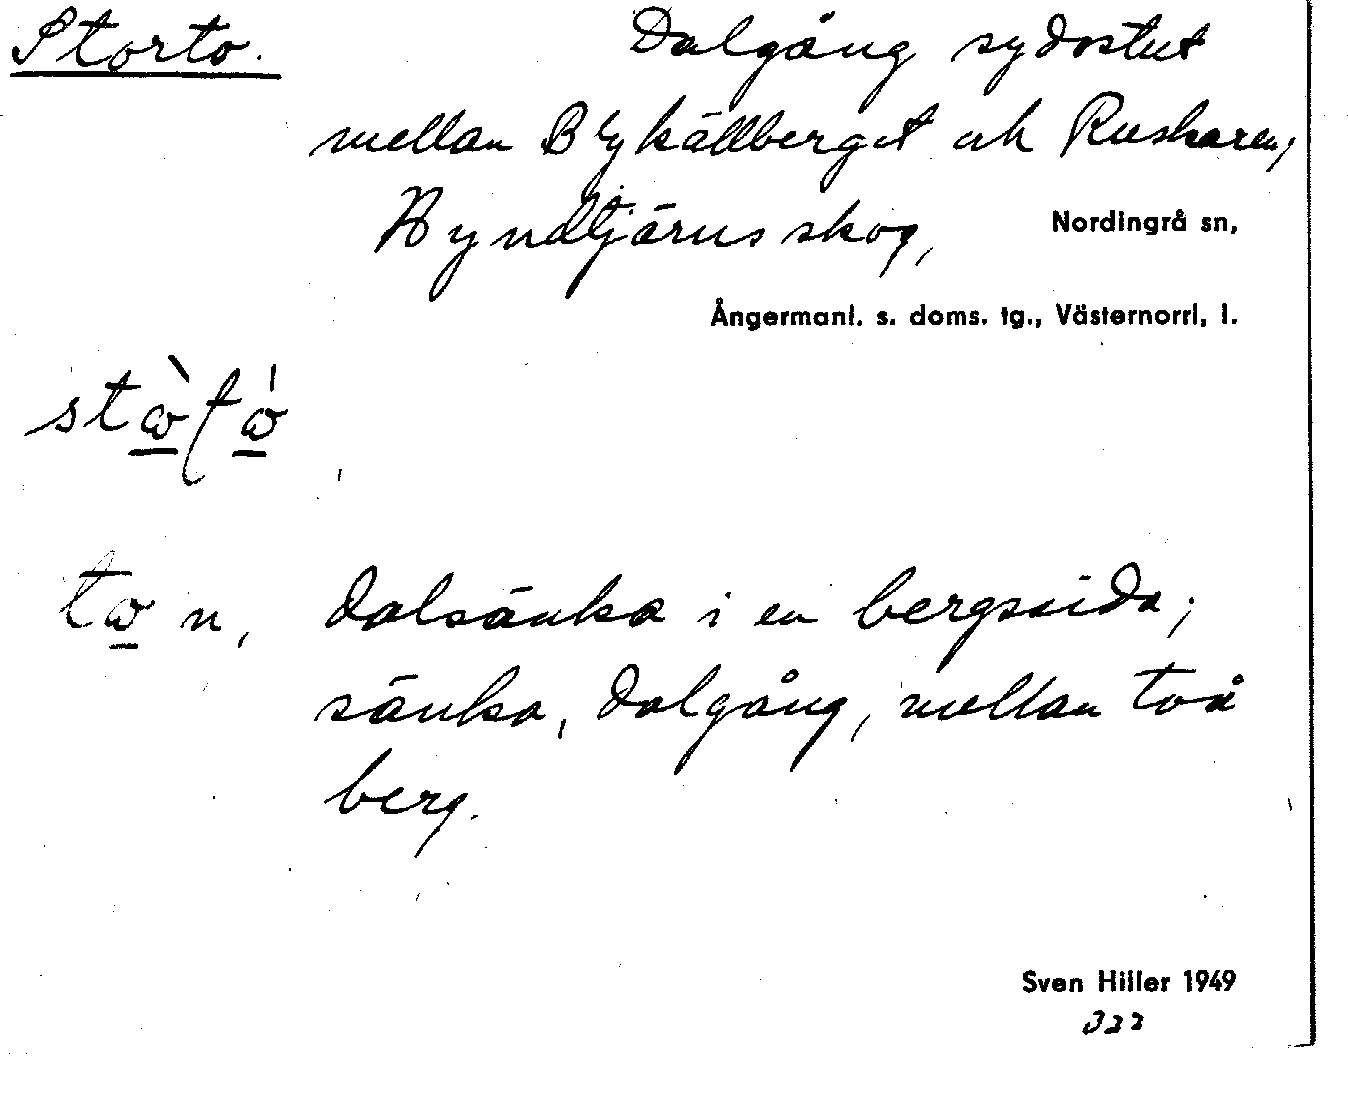 Storto. Dalgång sydostut
mellan Blykällberget och Ruskaren,
Nordingrå sn,
Ångermanl. s. doms. tg., Västernorrl. l.
to n, dalsänka i en bergssida;
sänka, dalgång, mellan två
berg.
Sven Hiller 1949
322